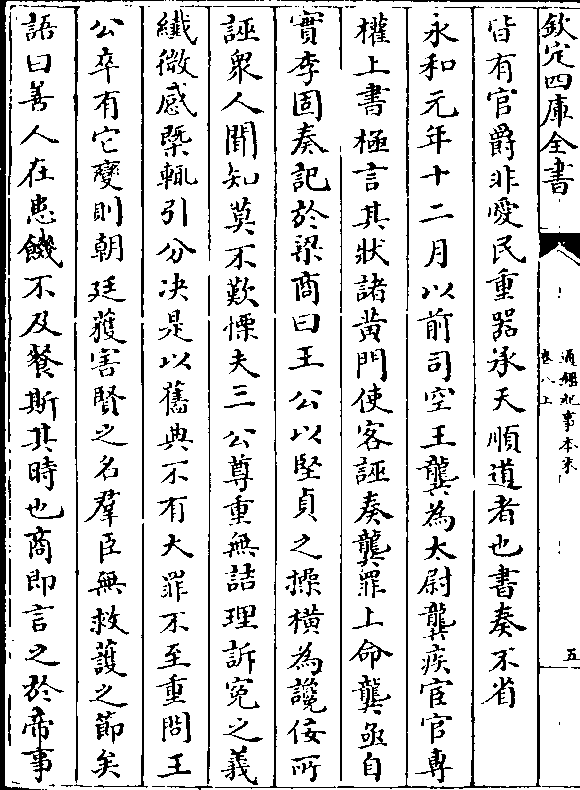 欽定四庫全書
通鑑紀事本末
卷八上
五
皆有官爵非愛民重器承天順道者也書奏不省
永和元年十二月以前司空王龔為太尉龔疾宦官專
權上書極言其狀諸黄門使客誣奏龔罪上命龔亟自
實李固奏記於梁商曰王公以堅貞之操橫為讒佞所
誣衆人聞知莫不歎慄夫三公尊重無詰理訴寃之義
纎微感槩輒引分决是以舊典不有大罪不至重問王
公卒有它變則朝廷獲害賢之名羣臣無救護之節矣
語曰善人在患饑不及餐斯其時也商即言之於帝事